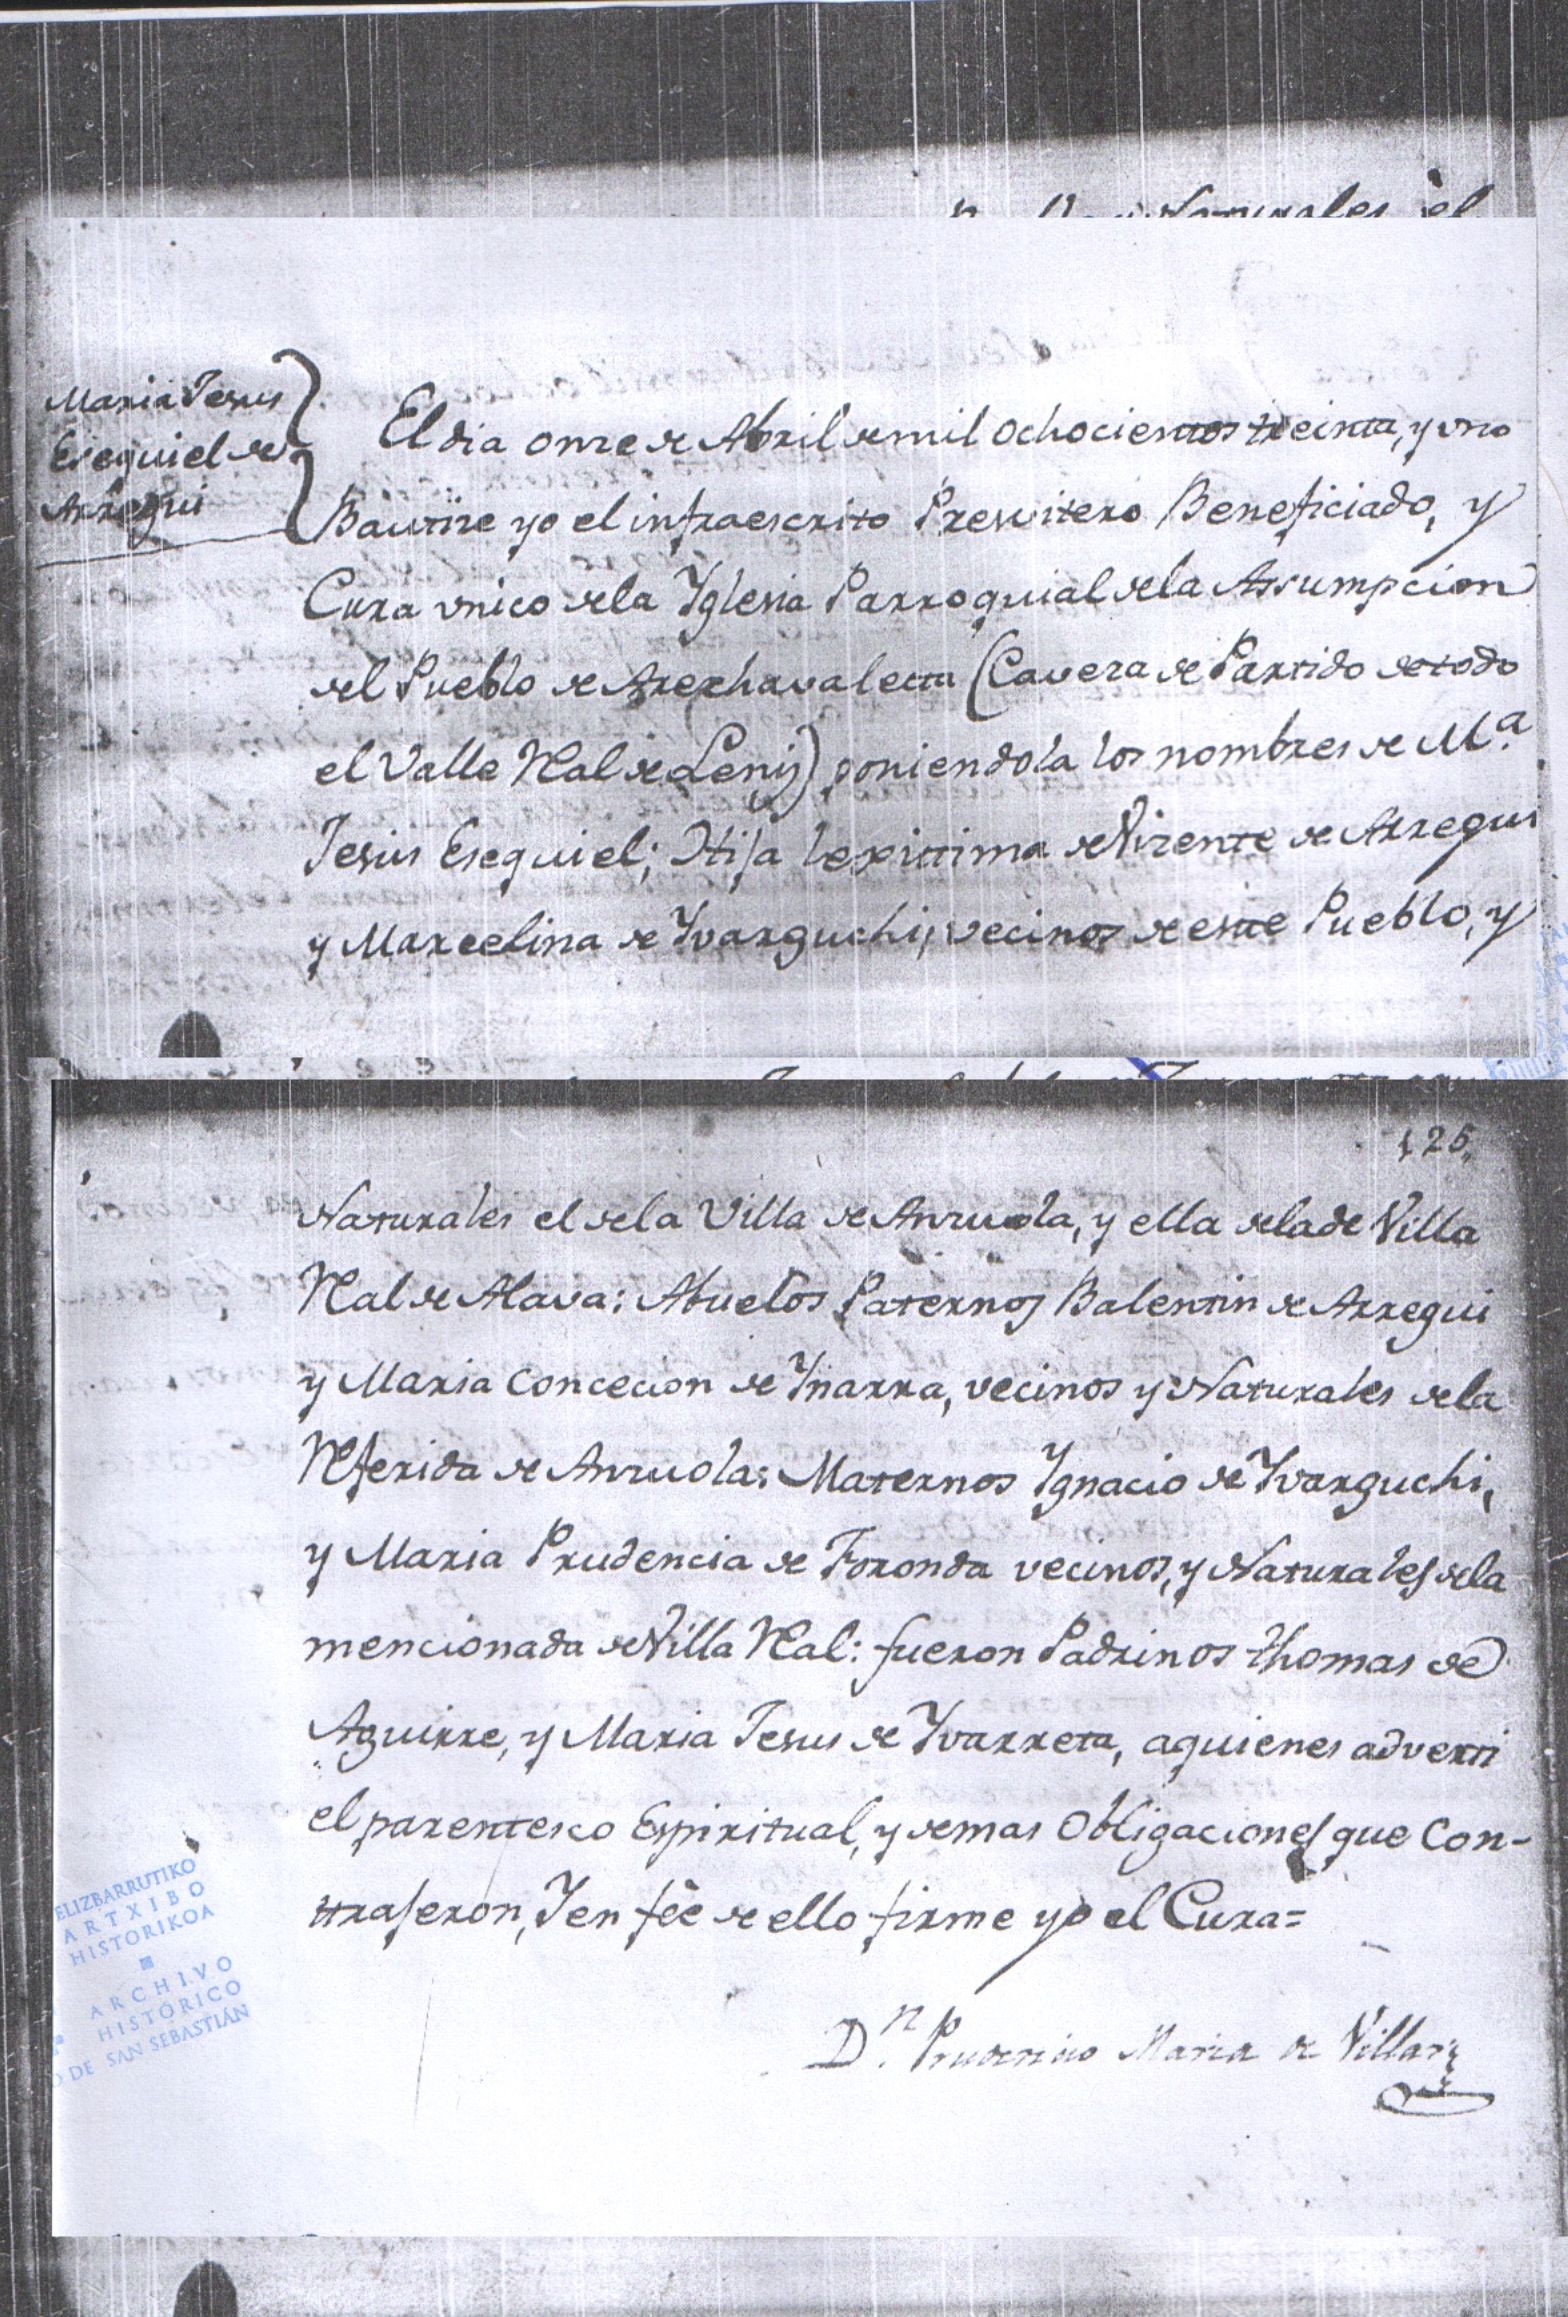 Naturales el
Maria Jesus
Esequiel de
Arregui
El dia onze de Abril de mil ochocientos treinta, y uno
Bautize yo el infraescrito Presvitero Beneficiado, y
Cura vnico de la Yglesia Parroquial de la Assumpcion
del Pueblo de Arechavaleta (Cavera de Partido de todo
el Valle Real de Leniz) poniendola los nombres de M.a
Jesus Esequiel; Hija lexitima de Vizente de Arregui
y Marcelina de Yvarguchi, vecinos de este Pueblo, y
125,,
Naturales el de la Villa de Anzuola, y ella de la de Villa
Real de Alava: Abuelos Paternos Balentin de Arregui
y Maria Concecion de Ynarra, vecinos y Naturales de la
Referida de Anzuola: Maternos Ygnacio de Yvarguchi,
y Maria Prudencia de Foronda vecinos, y Naturales de la
mencionada de Villa Real: fueron Padrinos thomas de
Aguirre, y Maria Jesus de Yvarreta, aquienes adverti
el parentesco Espiritual, y demas Obligaciones que con-
traxeron, Y en fèe de ello firme yo el Cura=
D.n Prudencio Maria de Villar
ELIZBARRUTIKO
ARTXIBO
HISTORIKOA
ARCHIVO
HISTÓRICO
O DE SAN SEBASTIÁN